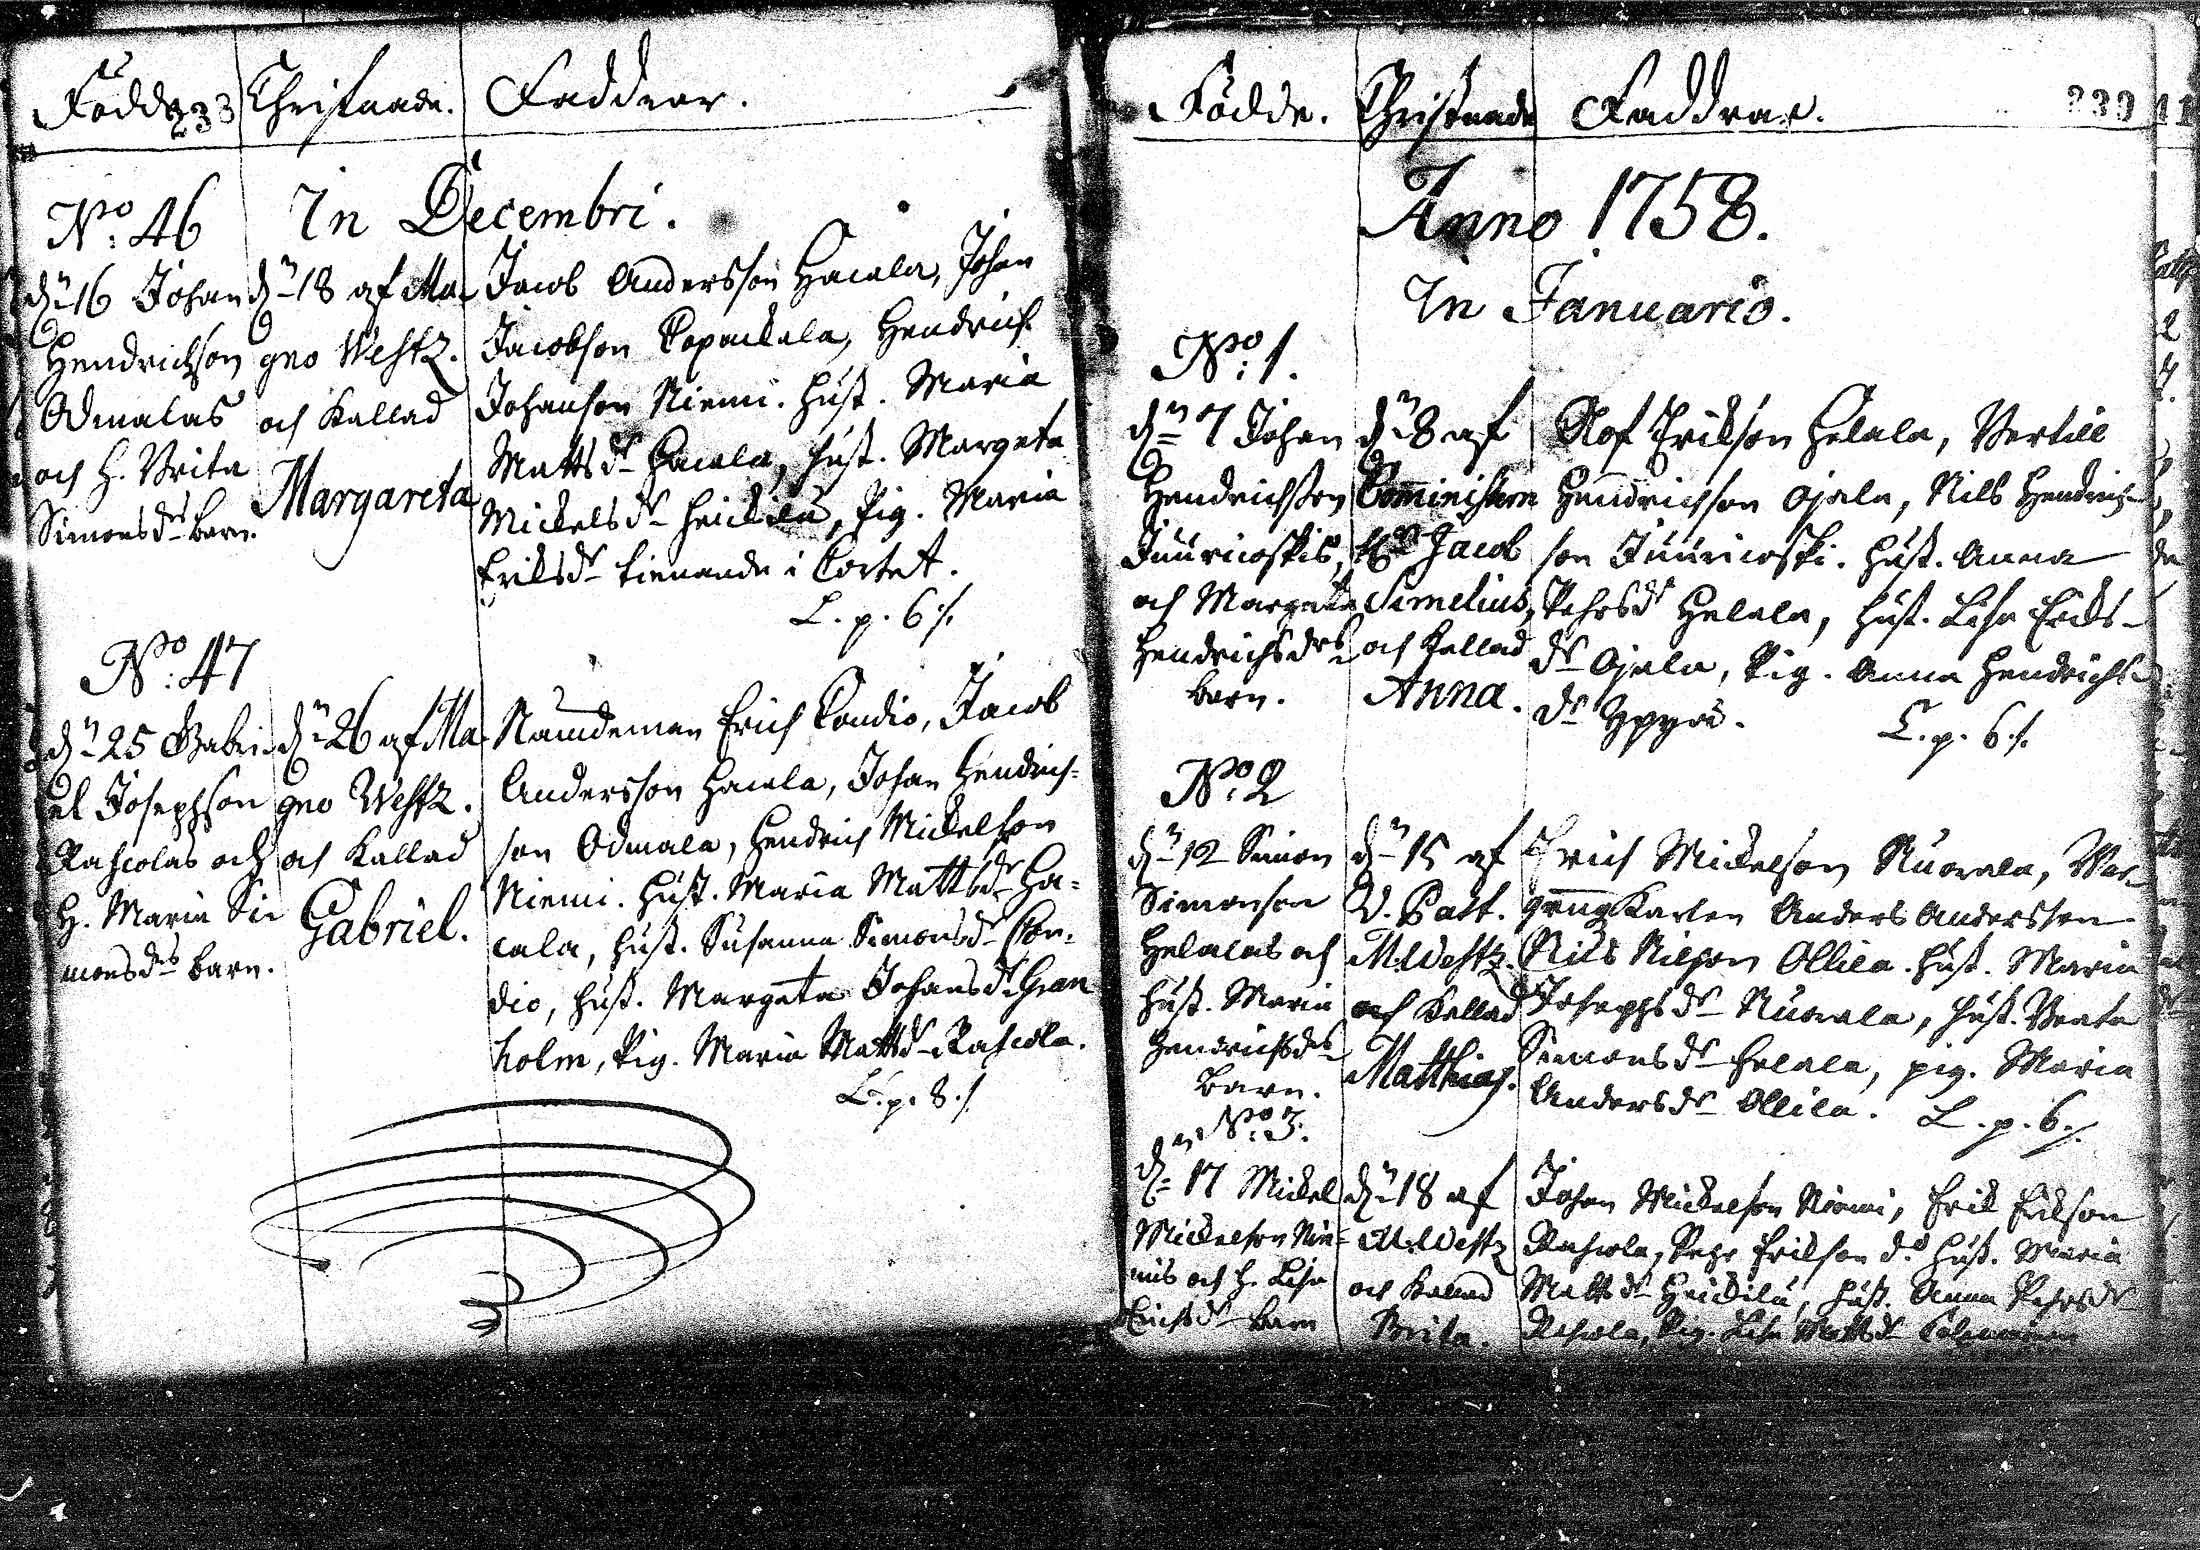 Födde 233 Christnade. Faddrar.
No: 46 In Decembri.
dn 16 Johan
Hendrichson
Odmalas
och H. Brita
Simonsdrs barn.
dn 18 af Ma-
gno Westz.
och Kallad
Margareta
Jacob Andersson Hacala, Johan
Jacobson Copackala, Hendrich
Johanson Niemi. Hust. Maria
Mattsdr Hacala, Hust. Margeta
Mickelsdr Heickilä, Pig. Maria
Eriksdr tienande i Cortet.
L. p. 6 ./.
No: 47
dn 25 Gabri-
el Josephson
Rahcolas och
H. Maria Si-
monsdrs barn.
dn 26 af Ma-
gno Westz.
och Kallad
Gabriel.
Nämdeman Erich Condio, Jacob
Andersson Hacala, Johan Hendrich-
son Odmala, Hendrich Mickelson
Niemi. Hust. Maria Mattsdr Ha-
cala, Hust. Susanna Simonsdr Con-
dio, Hust. Margeta Johansdr Gran-
holm, Pig. Maria Mattsdr Rahcola.
L. p. 8 ./.
Födde. Christnade Faddrar. 239
Anno 1758.
In Januario.
No: 1.
dn 7 Johan
Hendrichsson
Juuricoskis,
och Margeta
Hendrichsdrs
barn.
dn 8 af
Comministern
Hr Jacob
Simelius,
och Kallad
Anna.
Olof Erikson Helala, Bertill
Hendrichson Ojala, Nils Hendrich-
son Juuricoski. Hust. Anna
Pehrsdr Helala, Hust. Lisa Eriks-
dr Ojala, Pig. Anna Hendrichs-
dr Yppyä.
L. p. 6 ./.
No: 2
dn 12 Simon
Simonson
Helalas och
Hust. Maria
Hendrichsdrs
barn.
dn 15 af
V. Past.
M. Westz.
och Kallad
Matthias.
Erich Mickelson Nuorala,
Anders Andersson
Nils Nilson Ollila. Hust. Maria
Josephsdr Nuorala, Hust. Beata
Simonsdr Helala, pig. Maria
Andersdr Ollila. L. p. 6 ./.
No: 3.
dn 17 Mickel
Mickelson Nie-
mis och H. Lisa
Erichsdr barn
dn 18 af
M. Westz
och Kallad
Brita.
Johan Mickelson Niemi, Erik Erikson
Rahcola, Pehr Erikson do Hust. Maria
Mattsdr Heickilä, Hust. Anna Pehrsdr
Rahcola, Pig. Lisa Mattsdr